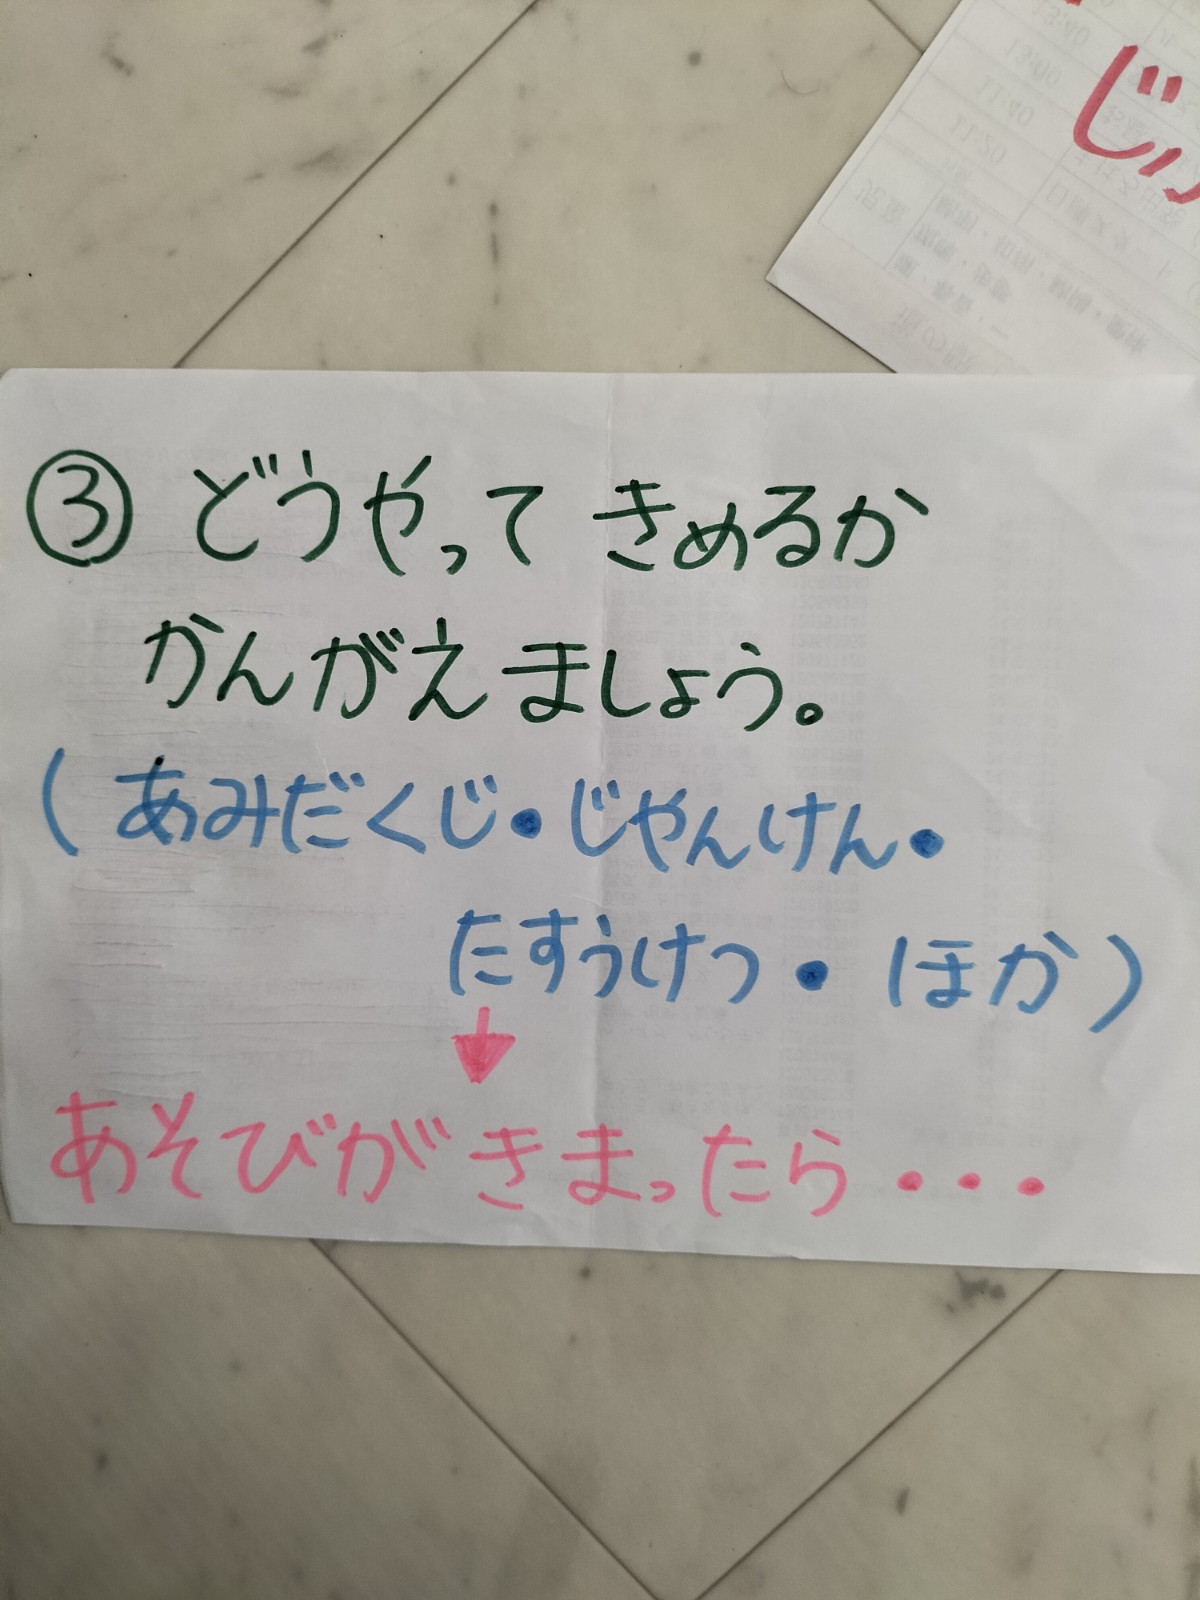 じ
③ どうやって きめるか
かんがえましょう。
(あみだくじ・じゃんけん・
たすうけつ・ほか)
↓
あそびが きまったら・・・